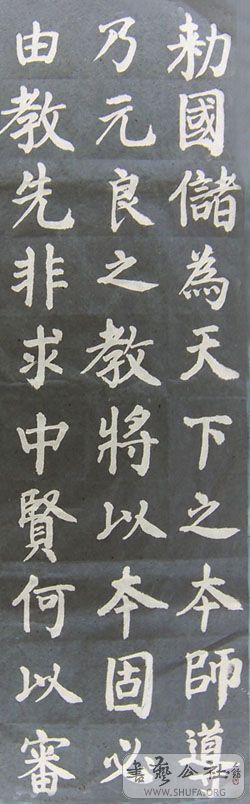 勅國儲為天下之本師導
乃元良之教將以本固必
由教先非求中賢何以審
書藝公社
WWW.SHUFA.ORG